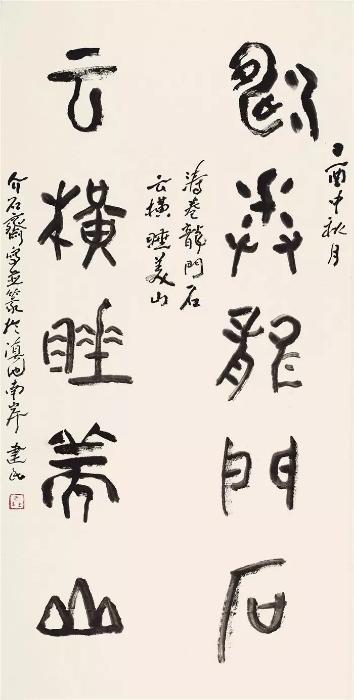 乙酉中秋月
濤卷龍門石
濤卷龍門石
云橫睡美山
云橫睡美山
介石齋寫篆於滇池南岸 建民